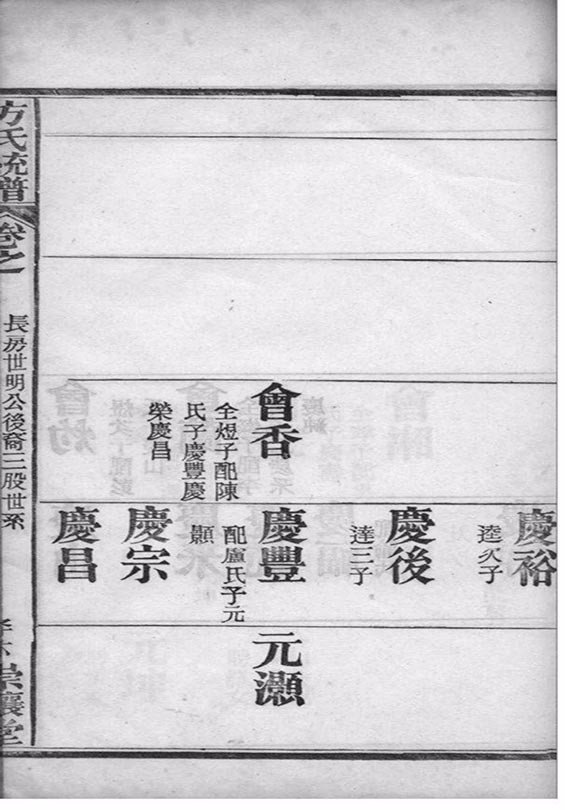 會香
仝煜子配陳
氏子慶豐慶
榮慶昌
慶裕
逵次子
慶後
逵三子
慶豐
配盧氏子元
顥
慶宗
慶昌
元灝
方氏統譜
卷之一
長房世明公後裔三股世系
崇讓堂